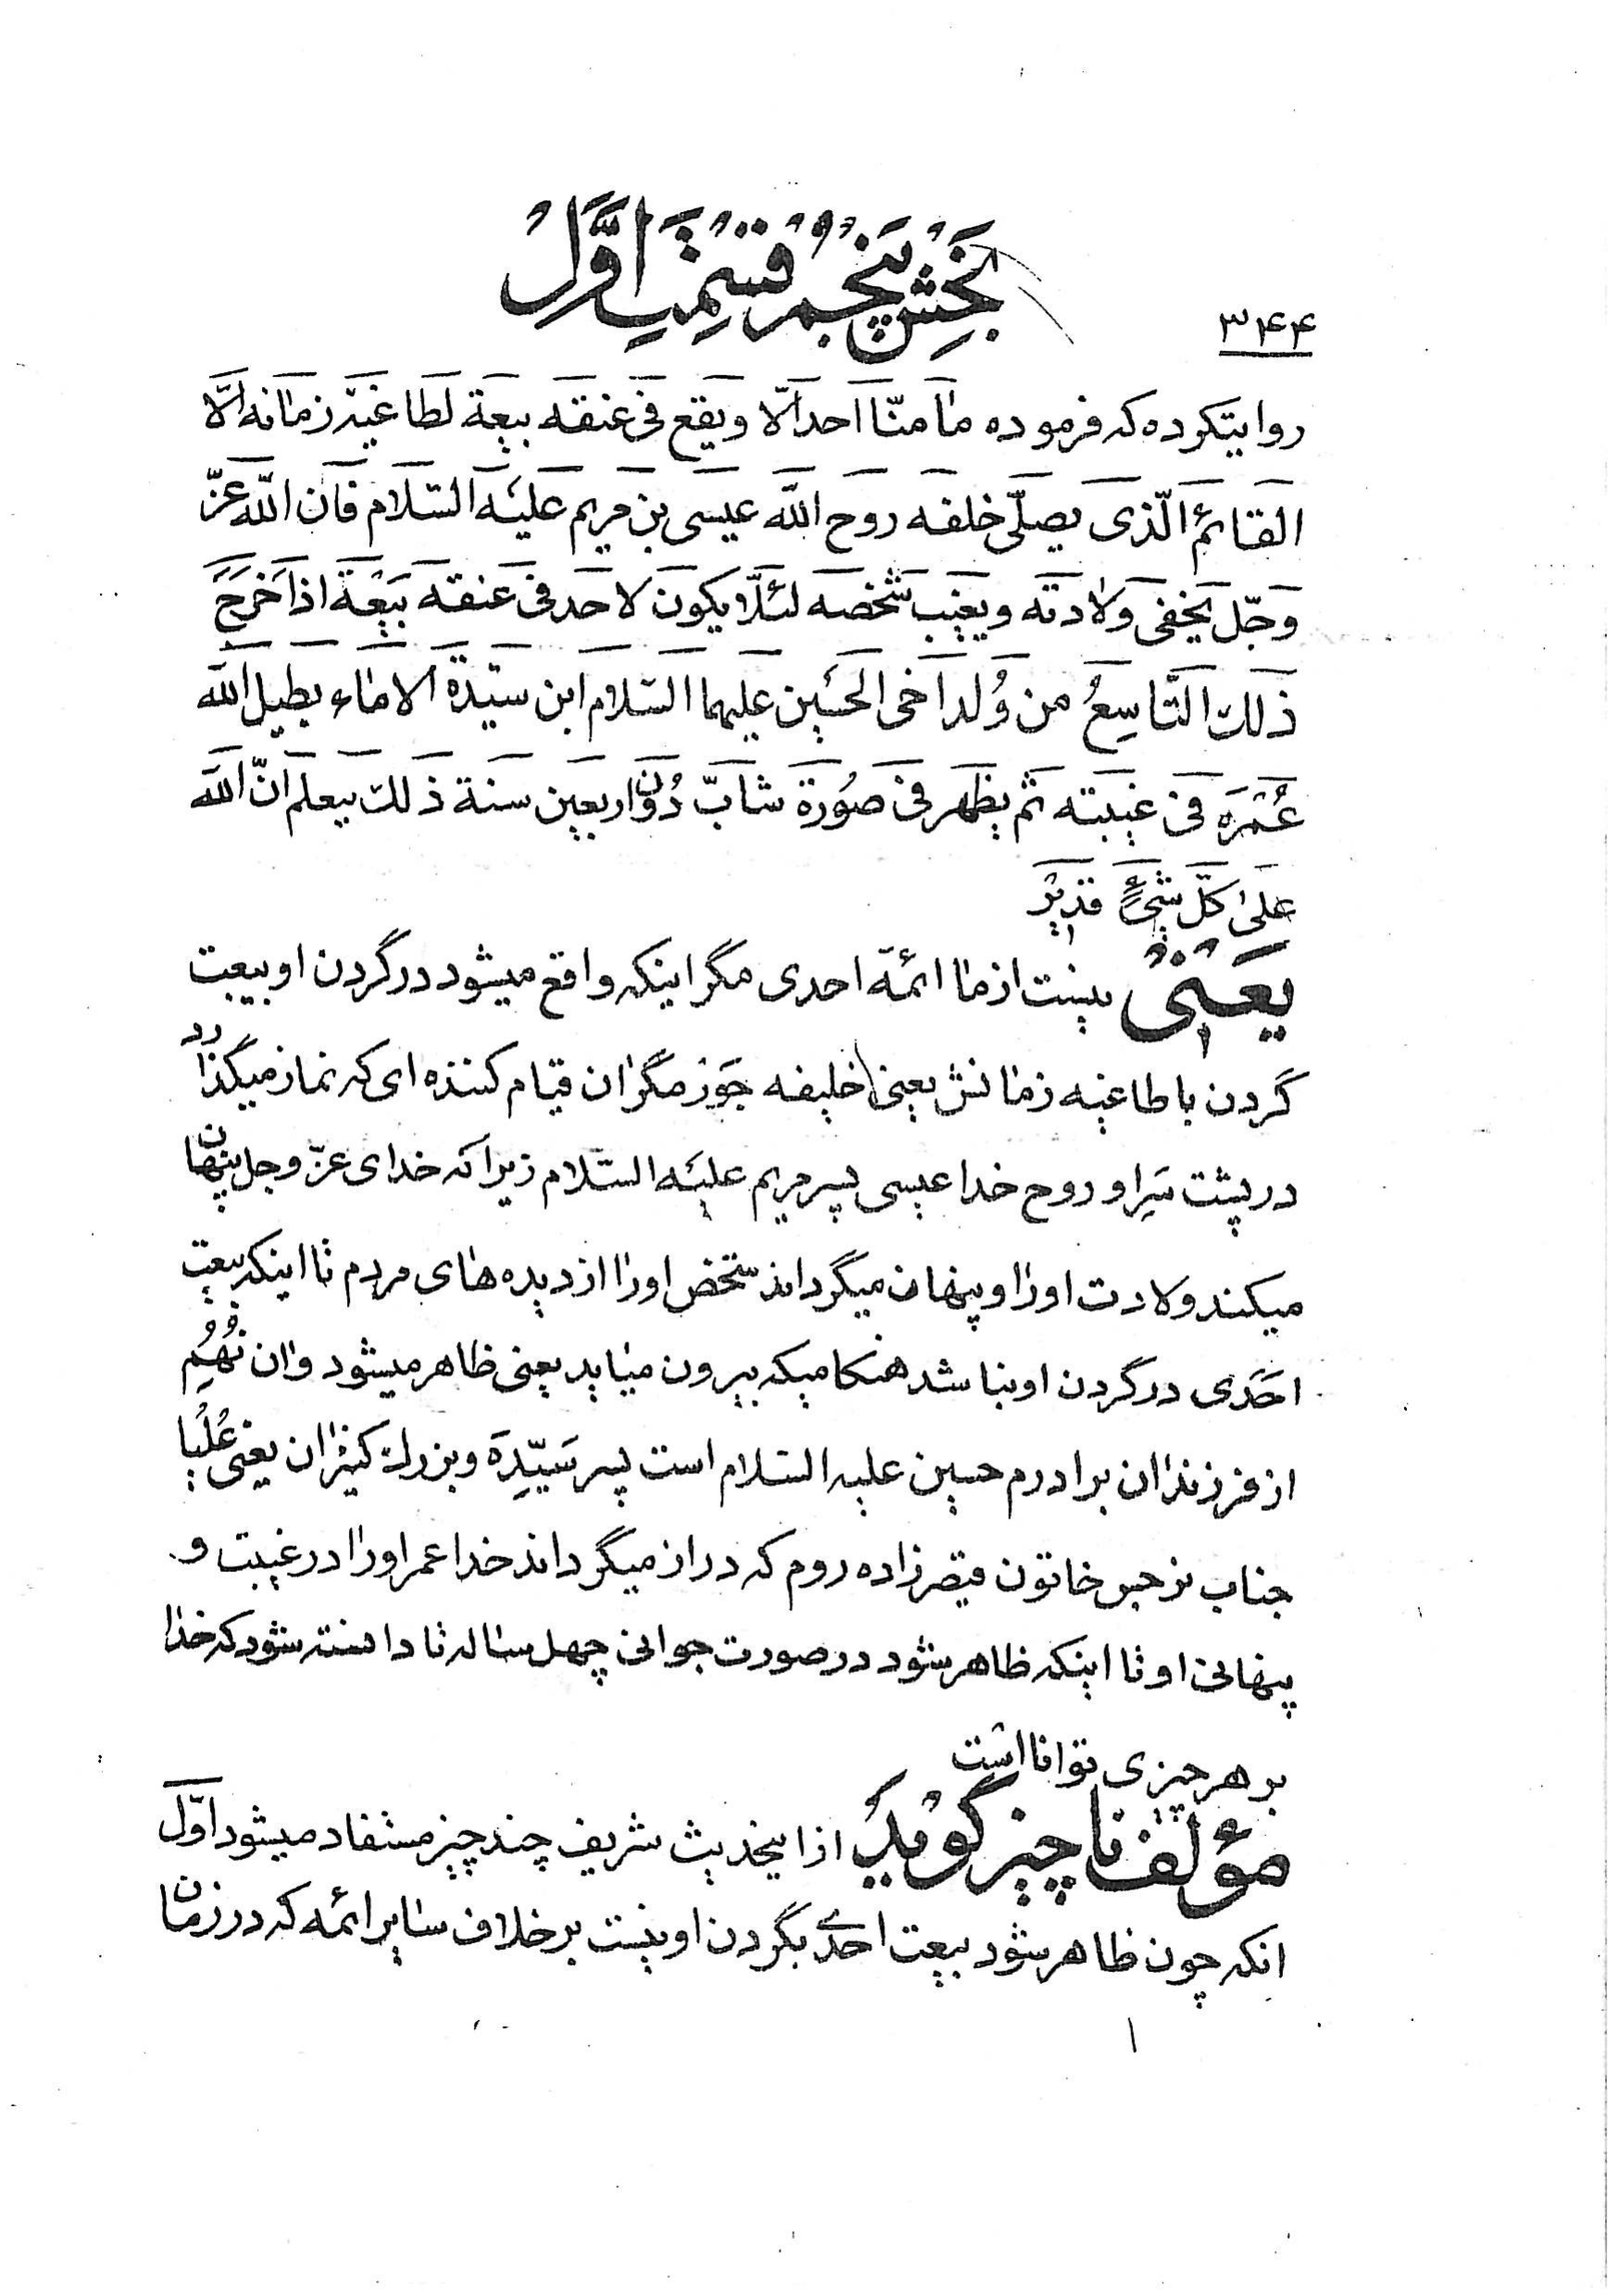 بخش پنجم قسمت اول
۳۴۴
روایتکرده که فرموده ما منّا احد الّا ویقع فی عنقه بیعة لطاغیة زمانه الّا
القائم الّذی یصلّی خلفه روح الله عیسی بن مریم علیه السّلام فان الله عزّ
وجّل یخفی ولادته ویغیب شخصه لئلّا یکون لاحد فی عنقه بیعة اذا خرج
ذلک التّاسِعُ من وُلد اخی الحسین علیهما السّلام ابن سیّدة الاماء یطیل الله
عُمره فی غیبته ثم یظهر فی صُورة شابّ دُون اربعین سنة ذلک لیعلم انّ الله
علی کلّ شیءٍ قدیر
یعنی نیست از ما ائمّه احدی مگر اینکه واقع میشود در گردن او بیعت
کردن با طاغیه زمانش یعنی خلیفه جور مگر ان قیام کننده ای که نماز میگذارد
در پشت سَرِ او روح خدا عیسی پسر مریم علیه السّلام زیرا که خدای عزّ وجل پنهان
میکند ولادت او را و پنهان میگرداند شخص او را از دیده های مردم تا اینکه بیعت
احَدی در گردن او نباشد هنگامیکه بیرون میاید یعنی ظاهر میشود و ان نُهُمِ
از فرزندان برادرم حسین علیه السّلام است پسر سَیّدِهَ و بزرک کنیزان یعنی عُلیا
جناب نرجس خاتون قیصر زاده روم که دراز میگرداند خدا عمر او را در غیبت و
پنهانی او تا اینکه ظاهر شود در صورت جوانی چهل ساله تا دانسته شود که خدا
بر هر چیزی توانا است
مؤلف ناچیز گوید از اینحدیث شریف چند چیز مستفاد میشود اوّل
انکه چون ظاهر شود بیعت احدی بگردن او نیست بر خلاف سایر ائمه که در زمان